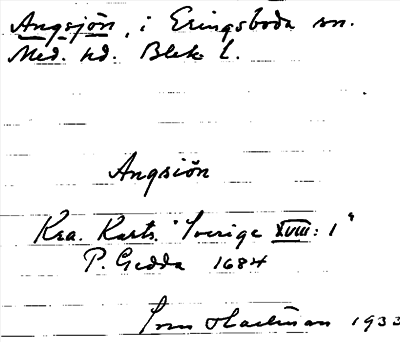 Angsjön, i Eringsboda sn.
Med. hd. Blek. l.
Angsiön
Kra. Kart. "Sverige XVIII: 1"
P. Gedda 1684
Hartman 1933